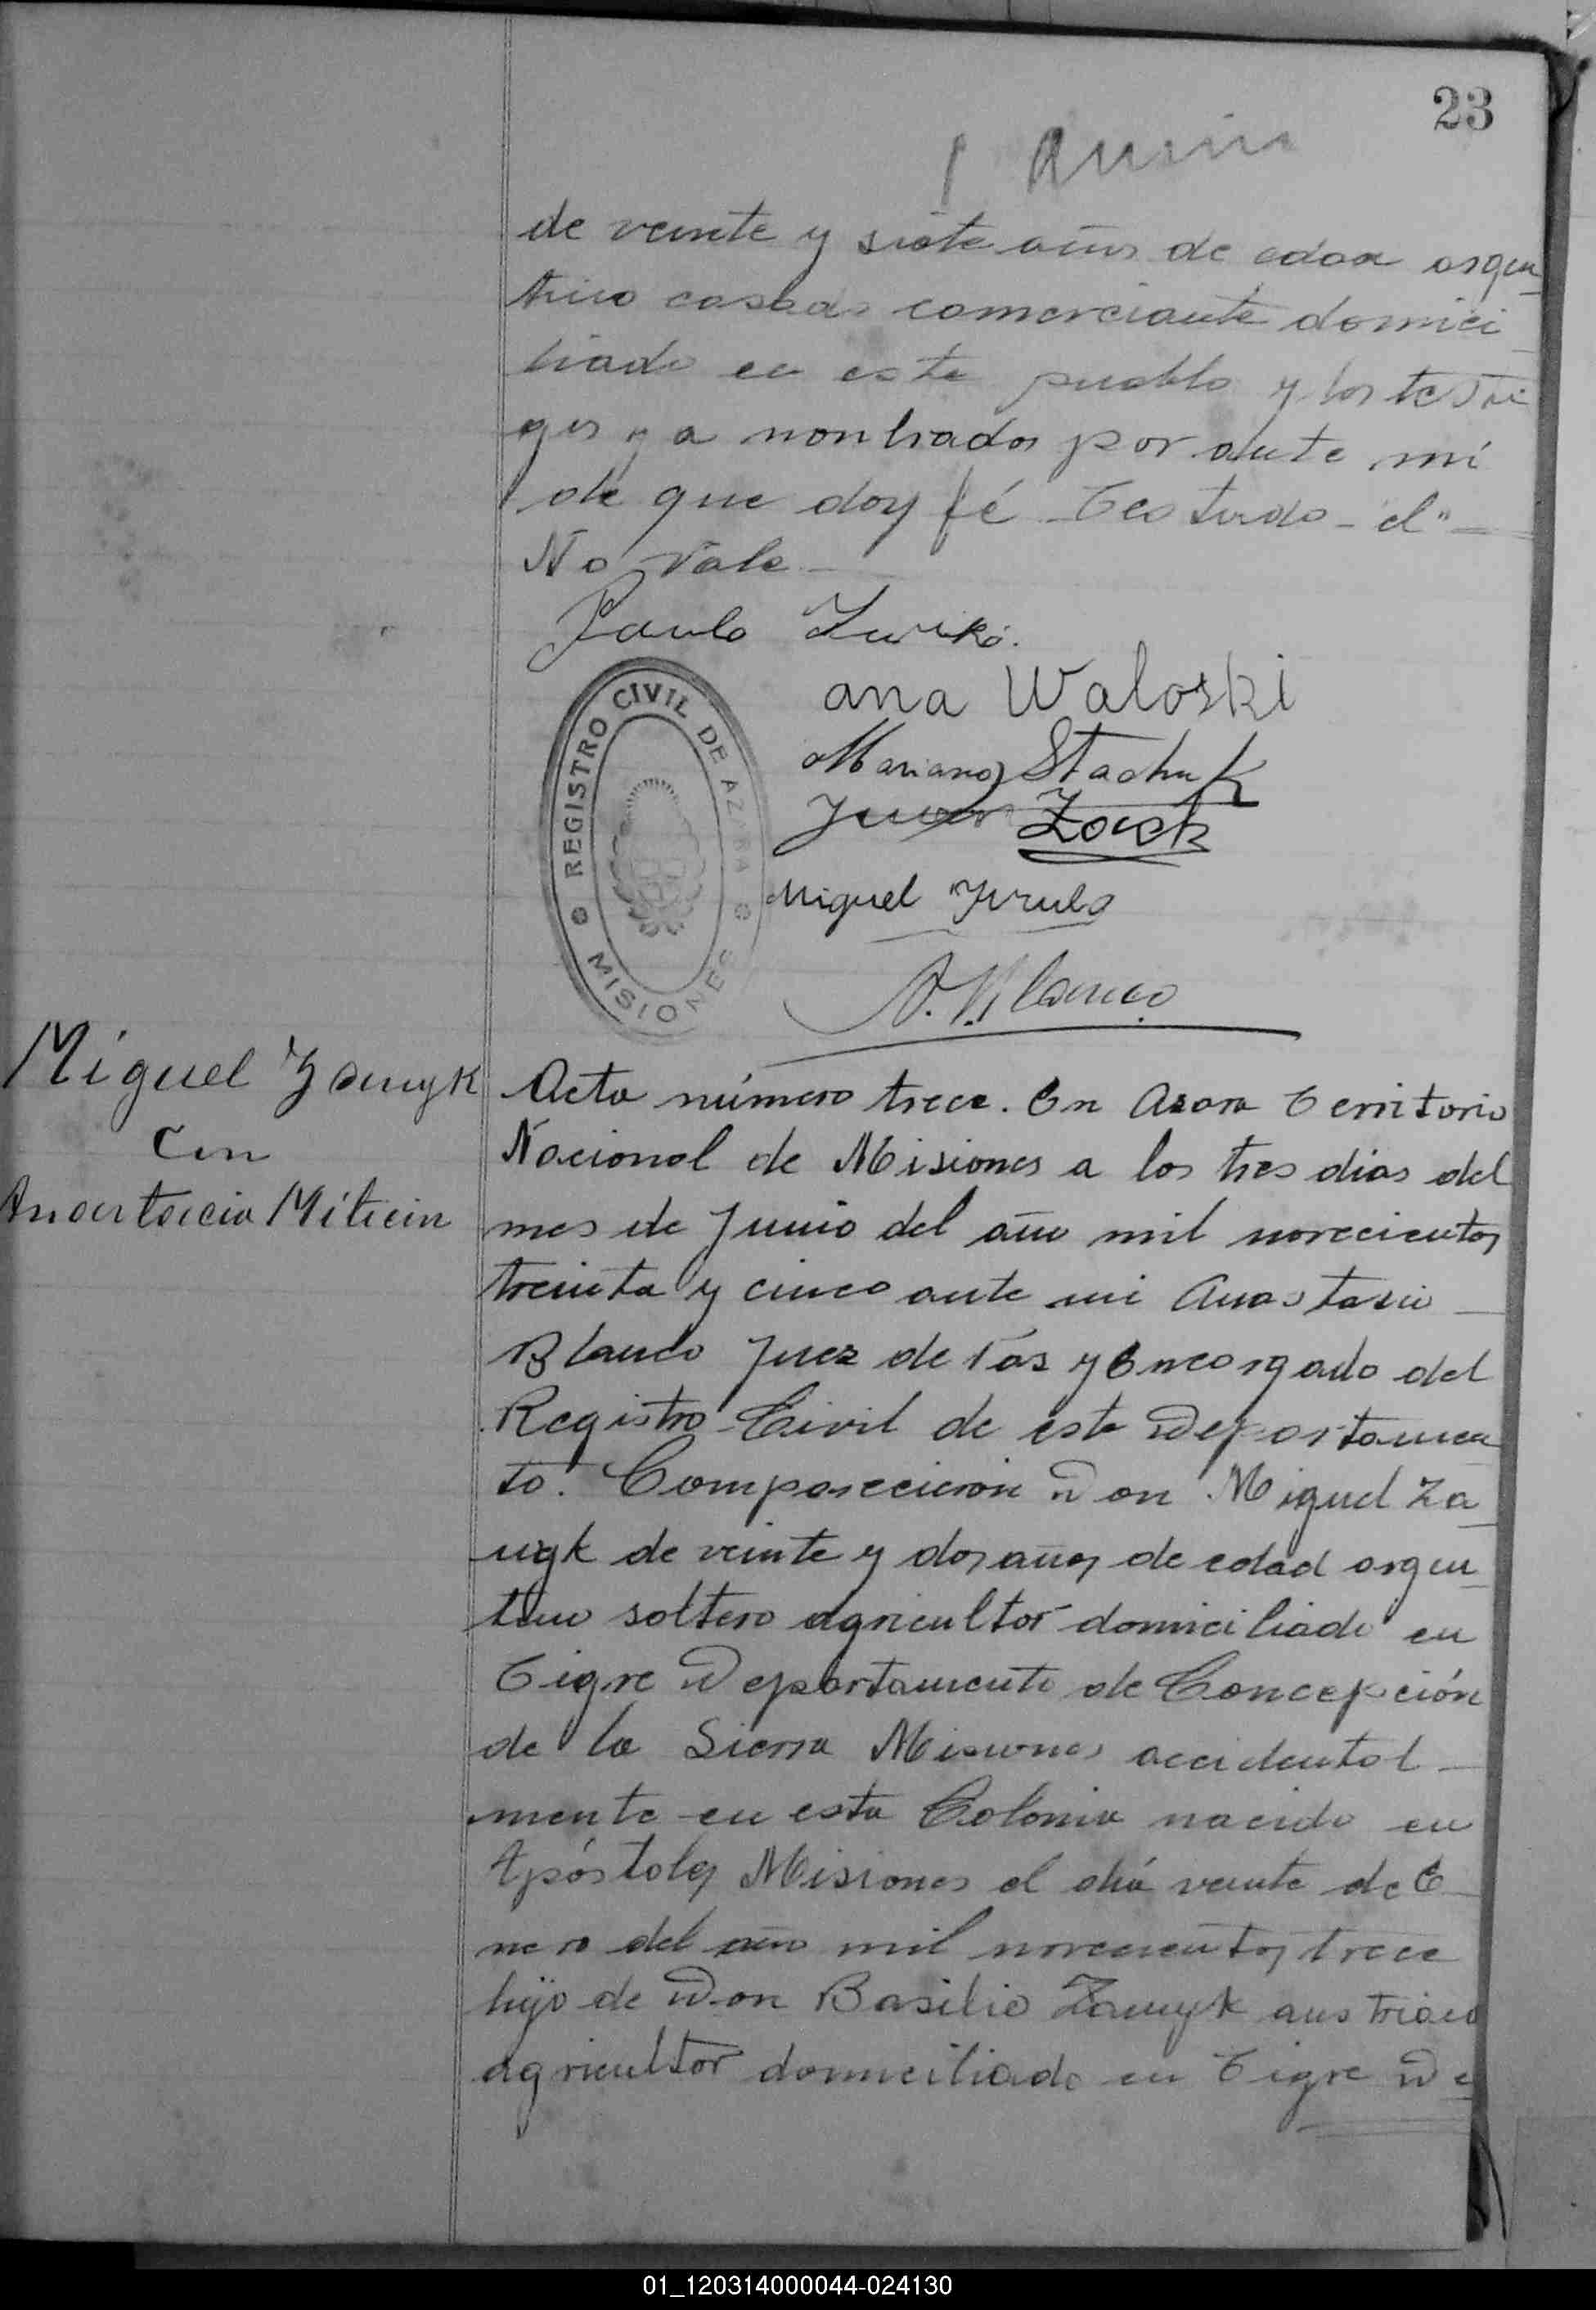 23
de veinte y siete años de edad argen
tino casado comerciante domici
liado en este pueblo y los testi
gos ya nonbrados por ante mí
de que doy fé Testado - el" -
No Vale -
Paulo
ana Waloski
Mariano Stachuk
Juan
Miguel
A. Blanco
REGISTRO CIVIL DE AZARA
MISIONES
Miguel Zamyk
Con
Anastacia
Acta número trece. En Azara Territorio
Nacional de Misiones a los tres dias del
mes de Junio del año mil novecientos
treinta y cinco ante mi Anastasio
Blanco Juez de Páz y Encargado del
Registro Civil de este Departamen
to. Comparecieron Don Miguel Za
myk de veinte y dos años de edad argen
tino soltero agricultor domiciliado en
Tigre Departamento de Concepción
de la Sierra Misiones accidental
mente en esta Colonia nacido en
Apóstoles Misiones el día veinte de E
nero del año mil novecientos trece
hijo de Don Basilio Zamyk austriaco
agricultor domiciliado en Tigre De
01_120314000044-024130